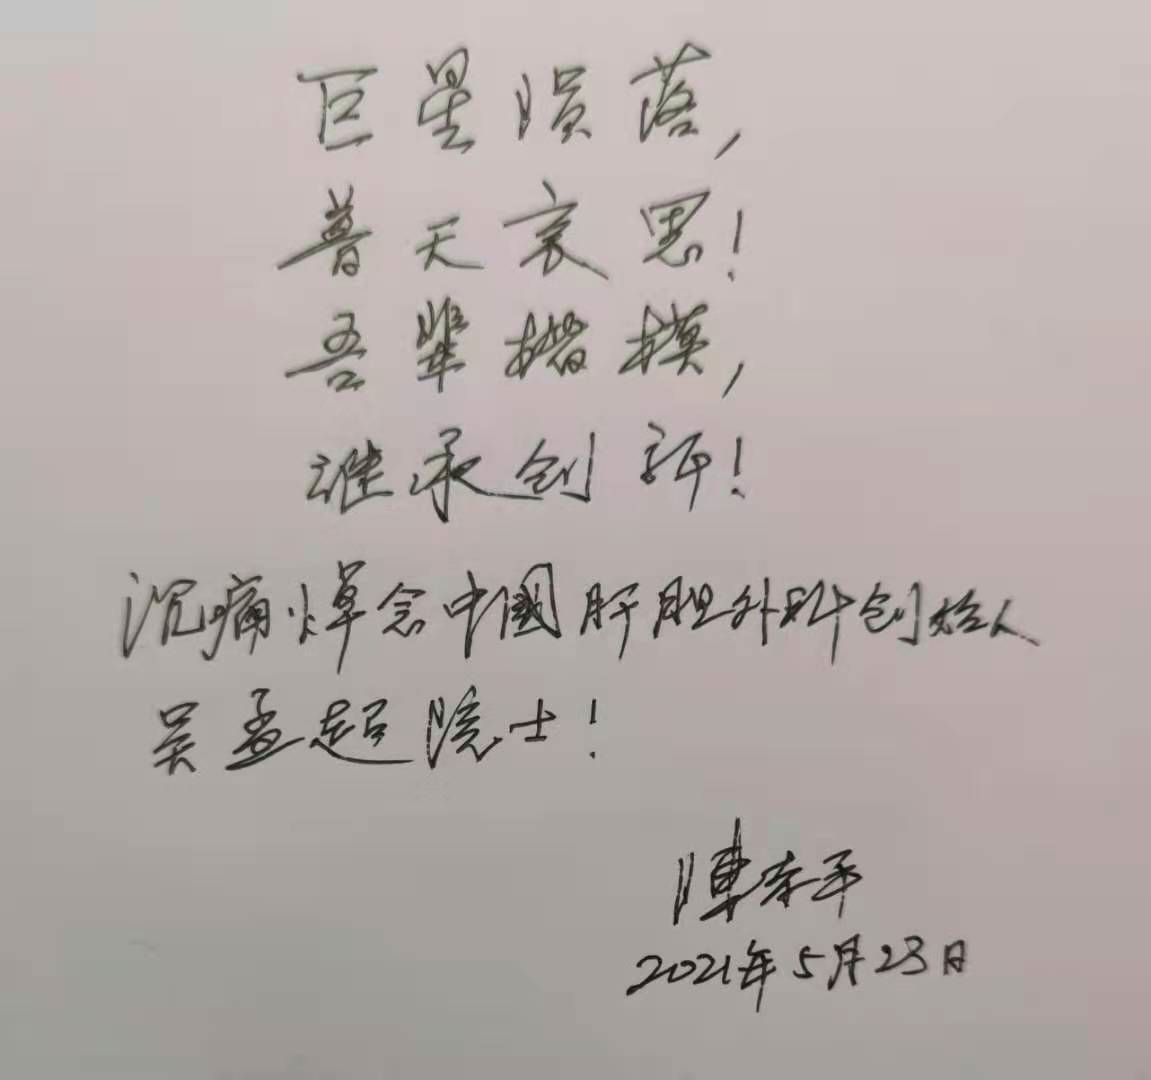 巨星陨落,
普天哀思!
吾辈楷模,
继承创新!
沉痛悼念中國肝胆外科创始人
吴孟超院士!
陳孝平
2021年5月23日